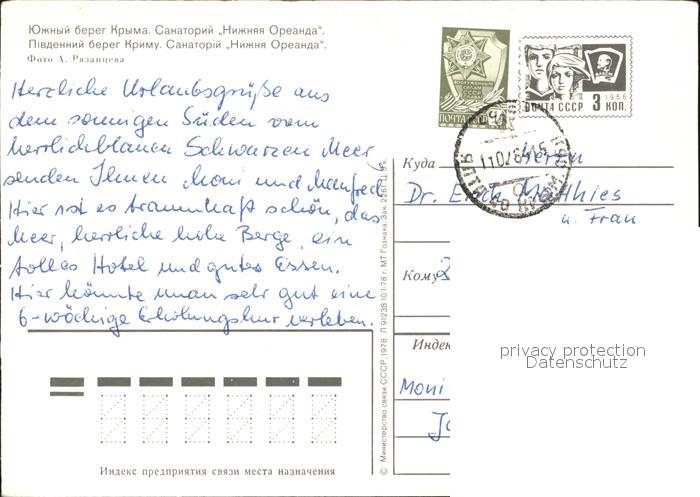 Южный берег Крыма. Санаторий „Нижняя Ореанда“.
Південний берег Криму. Санаторій „Нижня Ореанда“.
Фото А. Рязанцева
Herzliche Urlaubsgrüße aus
dem sonnigen Süden vom
herrlichblauen Schwarzen Meer
senden Ihnen Moni und Manfred
Hier ist es traumhaft schön, das
Meer, herrliche hohe Berge, ein
tolles Hotel und gutes Essen.
Hier könnte man sehr gut eine
6-wöchige Erholungskur verleben.
Индекс предприятия связи места назначения
© Министерство связи СССР, 1978 Л 91238 10/1-78 г. МТ Гознака. Зак.
ПОЧТА
ПОЧТА СССР 3 КОП.
1966
Куда Herrn
Dr. Erich Matthies
u. Frau
Кому
Индекс
Moni
privacy protection
Datenschutz